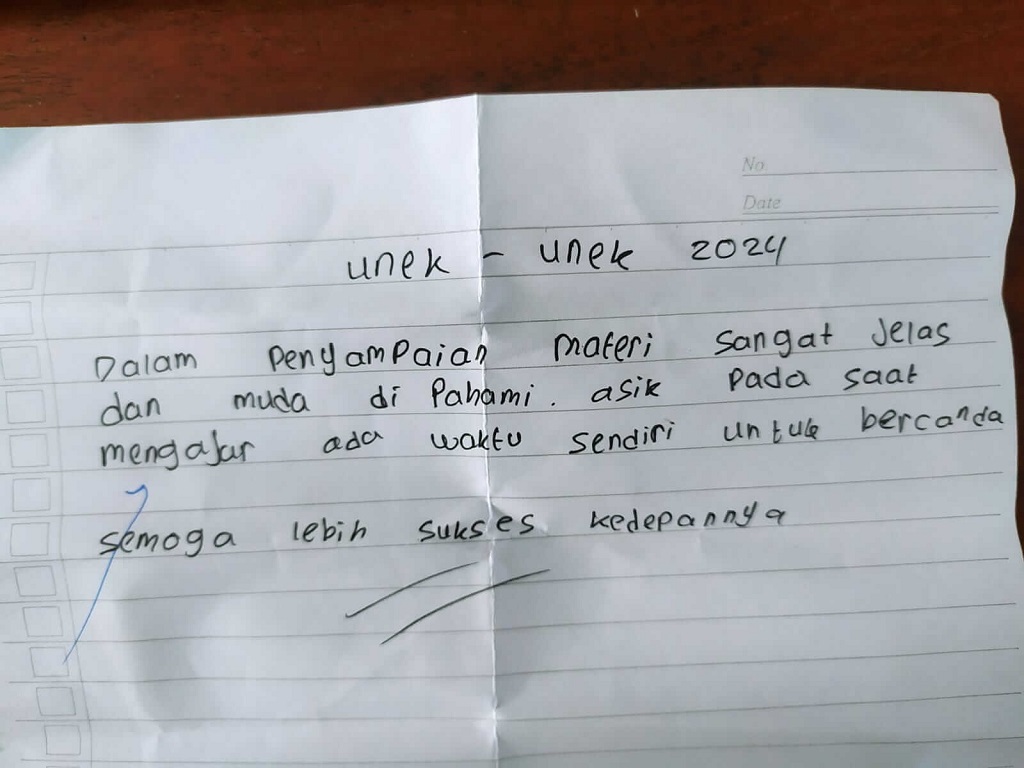 No
Date
unek - unek 2024
Dalam Penyampaian materi sangat Jelas
dan muda di Pahami. asik Pada saat
mengaJar ada waktu sendiri untuk bercanda
semoga lebih sukses kedepannya